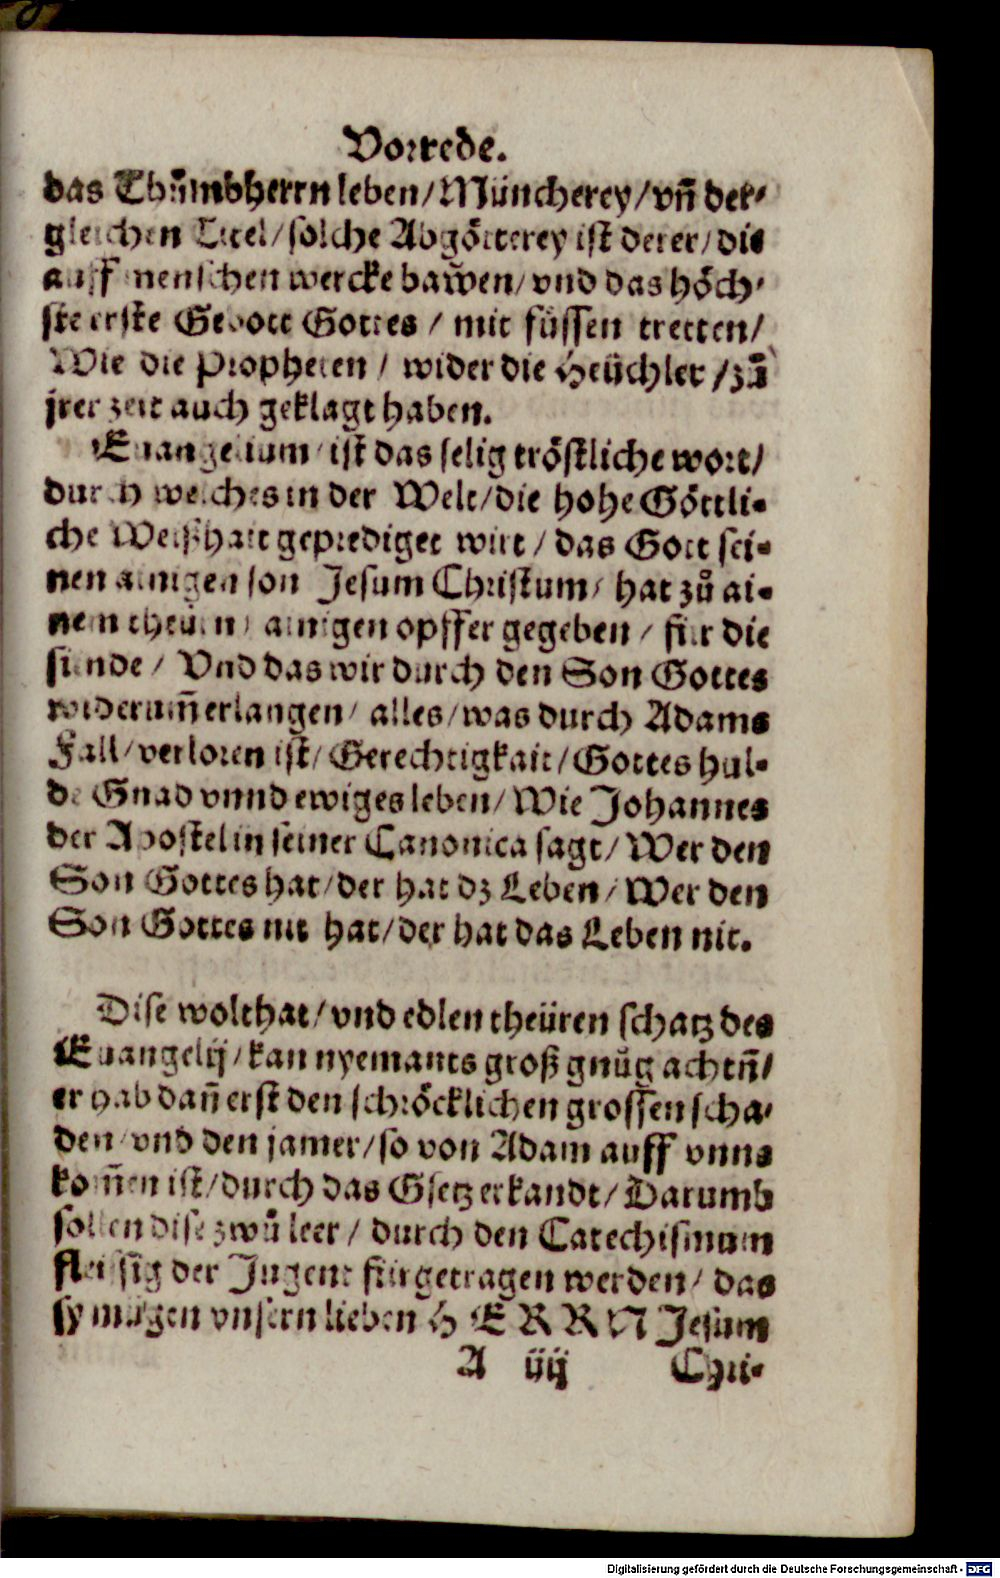 Vorrede.
das Thůmbherrn leben/Müncherey/vñ der⸗
gleichen Titel/solche Abgötterey ist derer/die
auff menschen wercke bawen/vnd das höch⸗
ste erste Gebott Gottes / mit füssen tretten/
Wie die Propheten / wider die Heüchler /zů
jrer zeit auch geklagt haben.
Euangelium ist das selig tröstliche wort/
durch welches in der Welt/die hohe Göttli⸗
che Weißhait geprediget wirt / das Gott sei⸗
nen ainigen son Jesum Christum/ hat zů ai⸗
nem theüren/ ainigen opffer gegeben / für die
sünde / Vnd das wir durch den Son Gottes
widerum̃ erlangen/ alles/was durch Adams
Fall/verloren ist/Gerechtigkait/Gottes hul⸗
de Gnad vnnd ewiges leben/Wie Johannes
der Apostel in seiner Canonica sagt/Wer den
Son Gottes hat/der hat dz Leben/Wer den
Son Gottes nit hat/der hat das Leben nit.
Dise wolthat/vnd edlen theüren schatz des
Euangelij/kan nyemants groß gnůg achtñ/
er hab dañ erst den schröcklichen grossen scha⸗
den/vnd den jamer/so von Adam auff vnns
kom̃en ist/durch das Gsetz erkandt/Darumb
sollen dise zwů leer / durch den Catechismum
fleissig der Jugent fürgetragen werden/ das
sy mügen vnsern lieben HERRN Jesum
A iiij Chri⸗
Digitalisierung gefördert durch die Deutsche Forschungsgemeinschaft - DFG